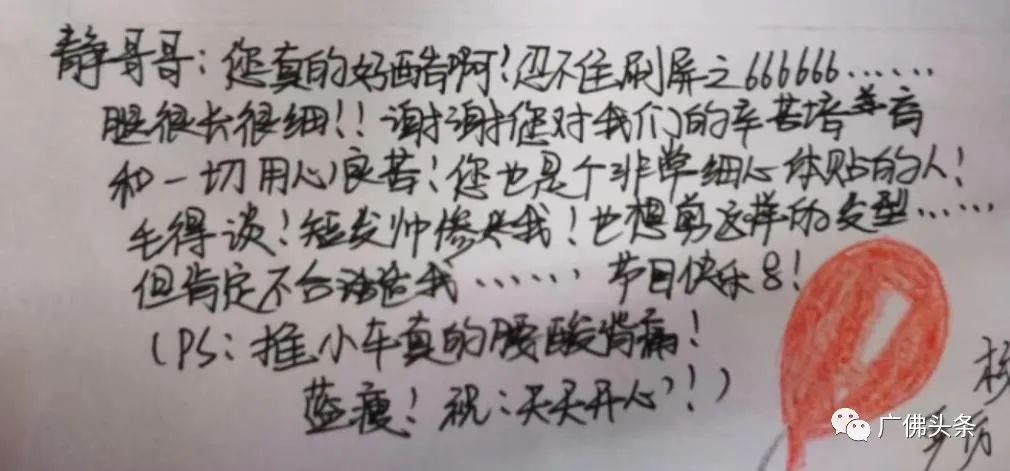 静哥哥：您真的好酷啊！忍不住刷屏之666666……
腿很长很细！！谢谢您对我们的辛苦培养育
和一切用心良苦！您也是个非常细心体贴的人！
毛得谈！短发帅惨我！也想剪这样的发型……
但肯定不合适我…… 节日快乐8！
（PS：推小车真的腰酸背痛！
蓝瘦！祝：天天开心！）
广佛头条